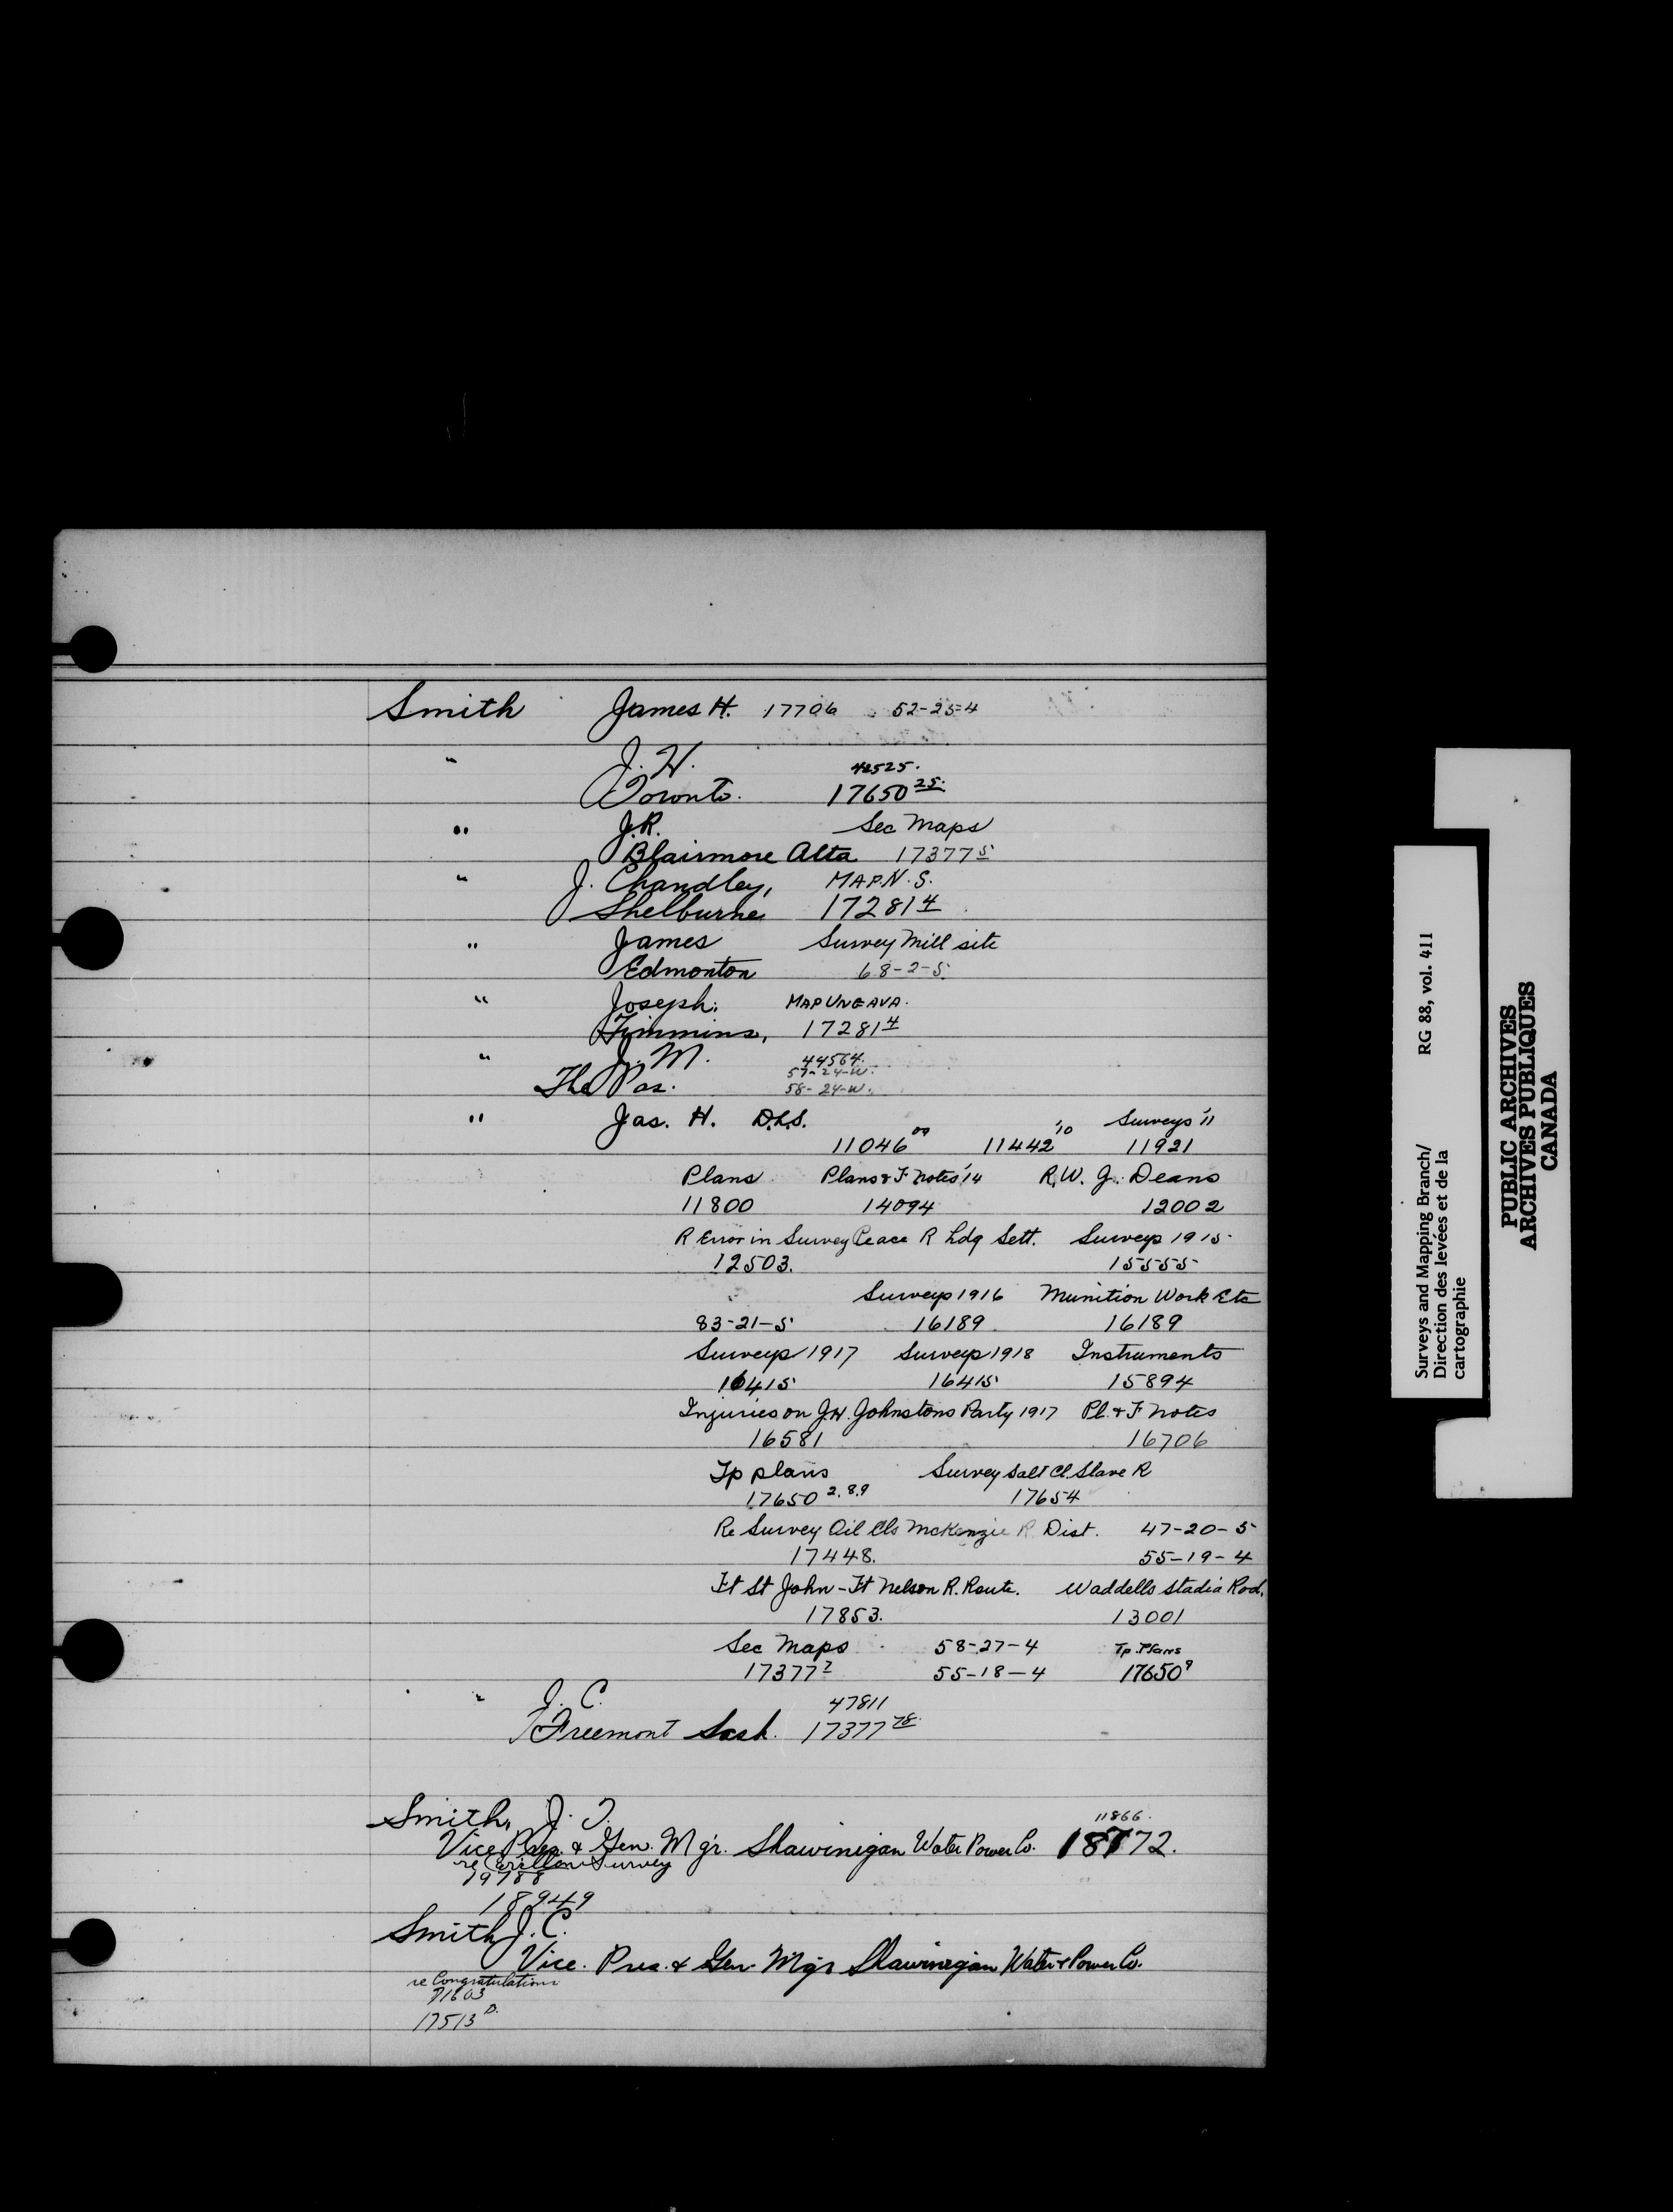 Smith James H. 17706 52-25-4
" J. H. 42525.
Toronto. 17650 25.
" J.R. Sec Maps
Blairmore Alta 17377 5
" J. Chandley, MAP N.S.
Shelburne 17281 4
" James Survey Mill site
Edmonton 68-2-5.
" Joseph, MAP UNGAVA.
Timmins, 17281 4
" J. M. 44564.
57-24-W.
The Pas. 58-24-W.
" Jas. H. D.L.S. Surveys '11
11046 09 11442 '10 11921
Plans Plans & F. Notes '14 R.W. G. Deans
11800 14094 12002
R Error in Survey Peace R Ldg Sett. Surveys 1915
12503. 15555
Surveys 1916 Munition Work Etc
83-21-5 16189 16189
Surveys 1917 Surveys 1918 Instruments
16415 16415 15894
Injuries on J.H. Johnstons Party 1917 Pl. & F. notes
16581 16706
Tp plans Survey Salt Cl. Slave R
17650 2.8.9 17654
Re Survey Oil Cls McKenzie R Dist. 47-20-5
17448. 55-19-4
Ft St John - Ft Nelson R. Route. Waddells Stadia Rod.
17853. 13001
Sec Maps 58-27-4 Tp. Plans
17377 7 55-18-4 17650 9
" J. C. 47811
Freemont Sask. 17377 78.
Smith, J. T. 11866.
Vice Pres. & Gen. Mgr. Shawinigan Water Power Co. 18172.
re Carillon Survey
79788
18949
Smith J. C.
Vice. Pres. & Gen. Mgr Shawinigan Water & Power Co.
re Congratulations
71603
17513 D.
Surveys and Mapping Branch/ RG 88, vol. 411
Direction des levées et de la
cartographie
PUBLIC ARCHIVES
ARCHIVES PUBLIQUES
CANADA